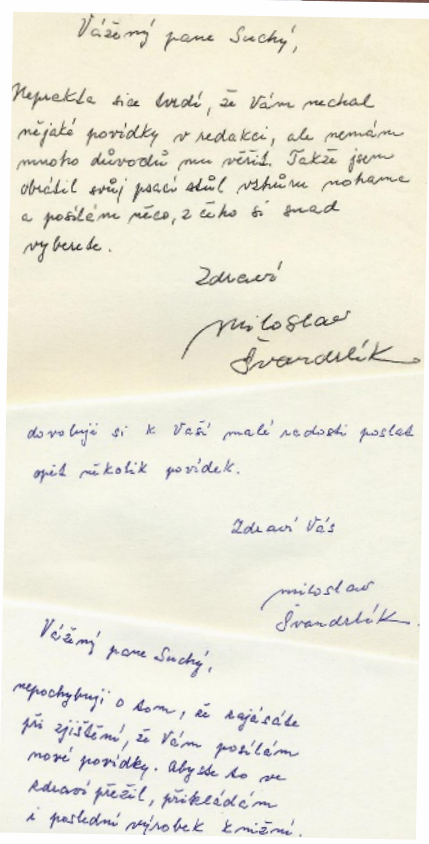 Vážený pane Suchý,
Neprakta sice tvrdí, že Vám nechal
nějaké povídky v redakci, ale nemám
mnoho důvodů mu věřit. Takže jsem
obrátil svůj psací stůl vzhůru nohama
a posílám něco, z čeho si snad
vyberete.
Zdraví
Miloslav
Švandrlík
dovoluji si k Vaší malé radosti poslat
opět několik povídek.
Zdraví Vás
Miloslav
Švandrlík.
Vážený pane Suchý,
nepochybuji o tom, že zajásáte
při zjištění, že Vám posílám
nové povídky. Abyste to ve
zdraví přežil, přikládám
i poslední výrobek knižní.